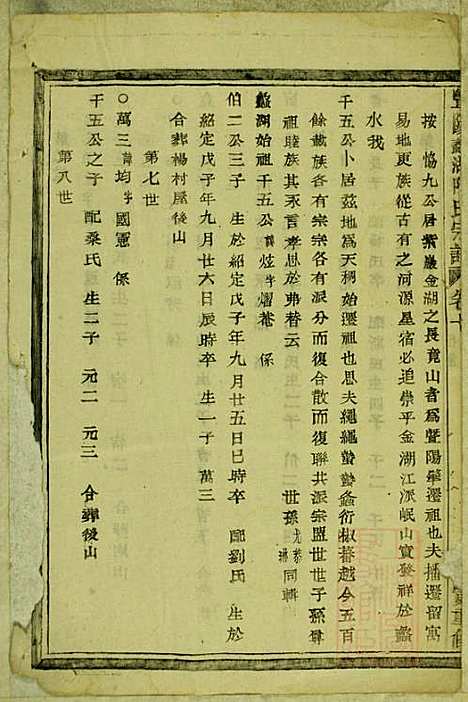 按 協九公居紫巖金湖之長竟山者爲暨陽肇遷祖也夫播遷留寓
易地更族從古有之河源星宿必追崇乎金湖江派岷山實發祥於蠡
水我
千五公卜居茲地爲天稠始遷祖也思夫繩繩蟄蟄螽衍椒蕃越今五百
餘載族各有宗宗各有派分而復合散而復聯共派宗盟世世子孫尊
祖睦族其所不言孝思於弗替云
世孫 同輯
蠡湖始祖千五公諱炫字熠菴 係
伯二公三子 生於紹定戊子年九月廿五日巳時卒 配劉氏 生於
紹定戊子年九月廿六日辰時卒 生一子 萬三
合葬楊村屋後山
第七世
○萬三諱均字國憲 係
千五公之子 配桑氏 生二子 元二 元三 合葬後山
第八世